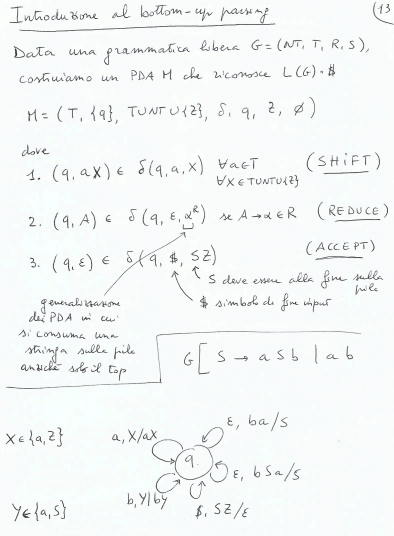 Introduzione al bottom-up parsing
13
Data una grammatica libera G = (NT, T, R, S),
costruiamo un PDA M che riconosce L(G)·$
M = (T, {q}, T∪NT∪{Z}, δ, q, Z, ∅)
dove
1. (q, aX) ∈ δ(q, a, X) ∀a∈T (SHIFT)
∀X∈T∪NT∪{Z}
2. (q, A) ∈ δ(q, ε, α^R) se A→α∈R (REDUCE)
3. (q, ε) ∈ δ(q, $, SZ) (ACCEPT)
S deve essere alla fine sulla
pila
$ simbolo di fine input
generalizzazione
dei PDA in cui
si consuma una
stringa sulla pila
anziché solo il top
G[ S → aSb | ab
X∈{a,Z}
a, X/aX
ε, ba/S
q
ε, bSa/S
b, Y/bY
$, SZ/ε
Y∈{a,S}